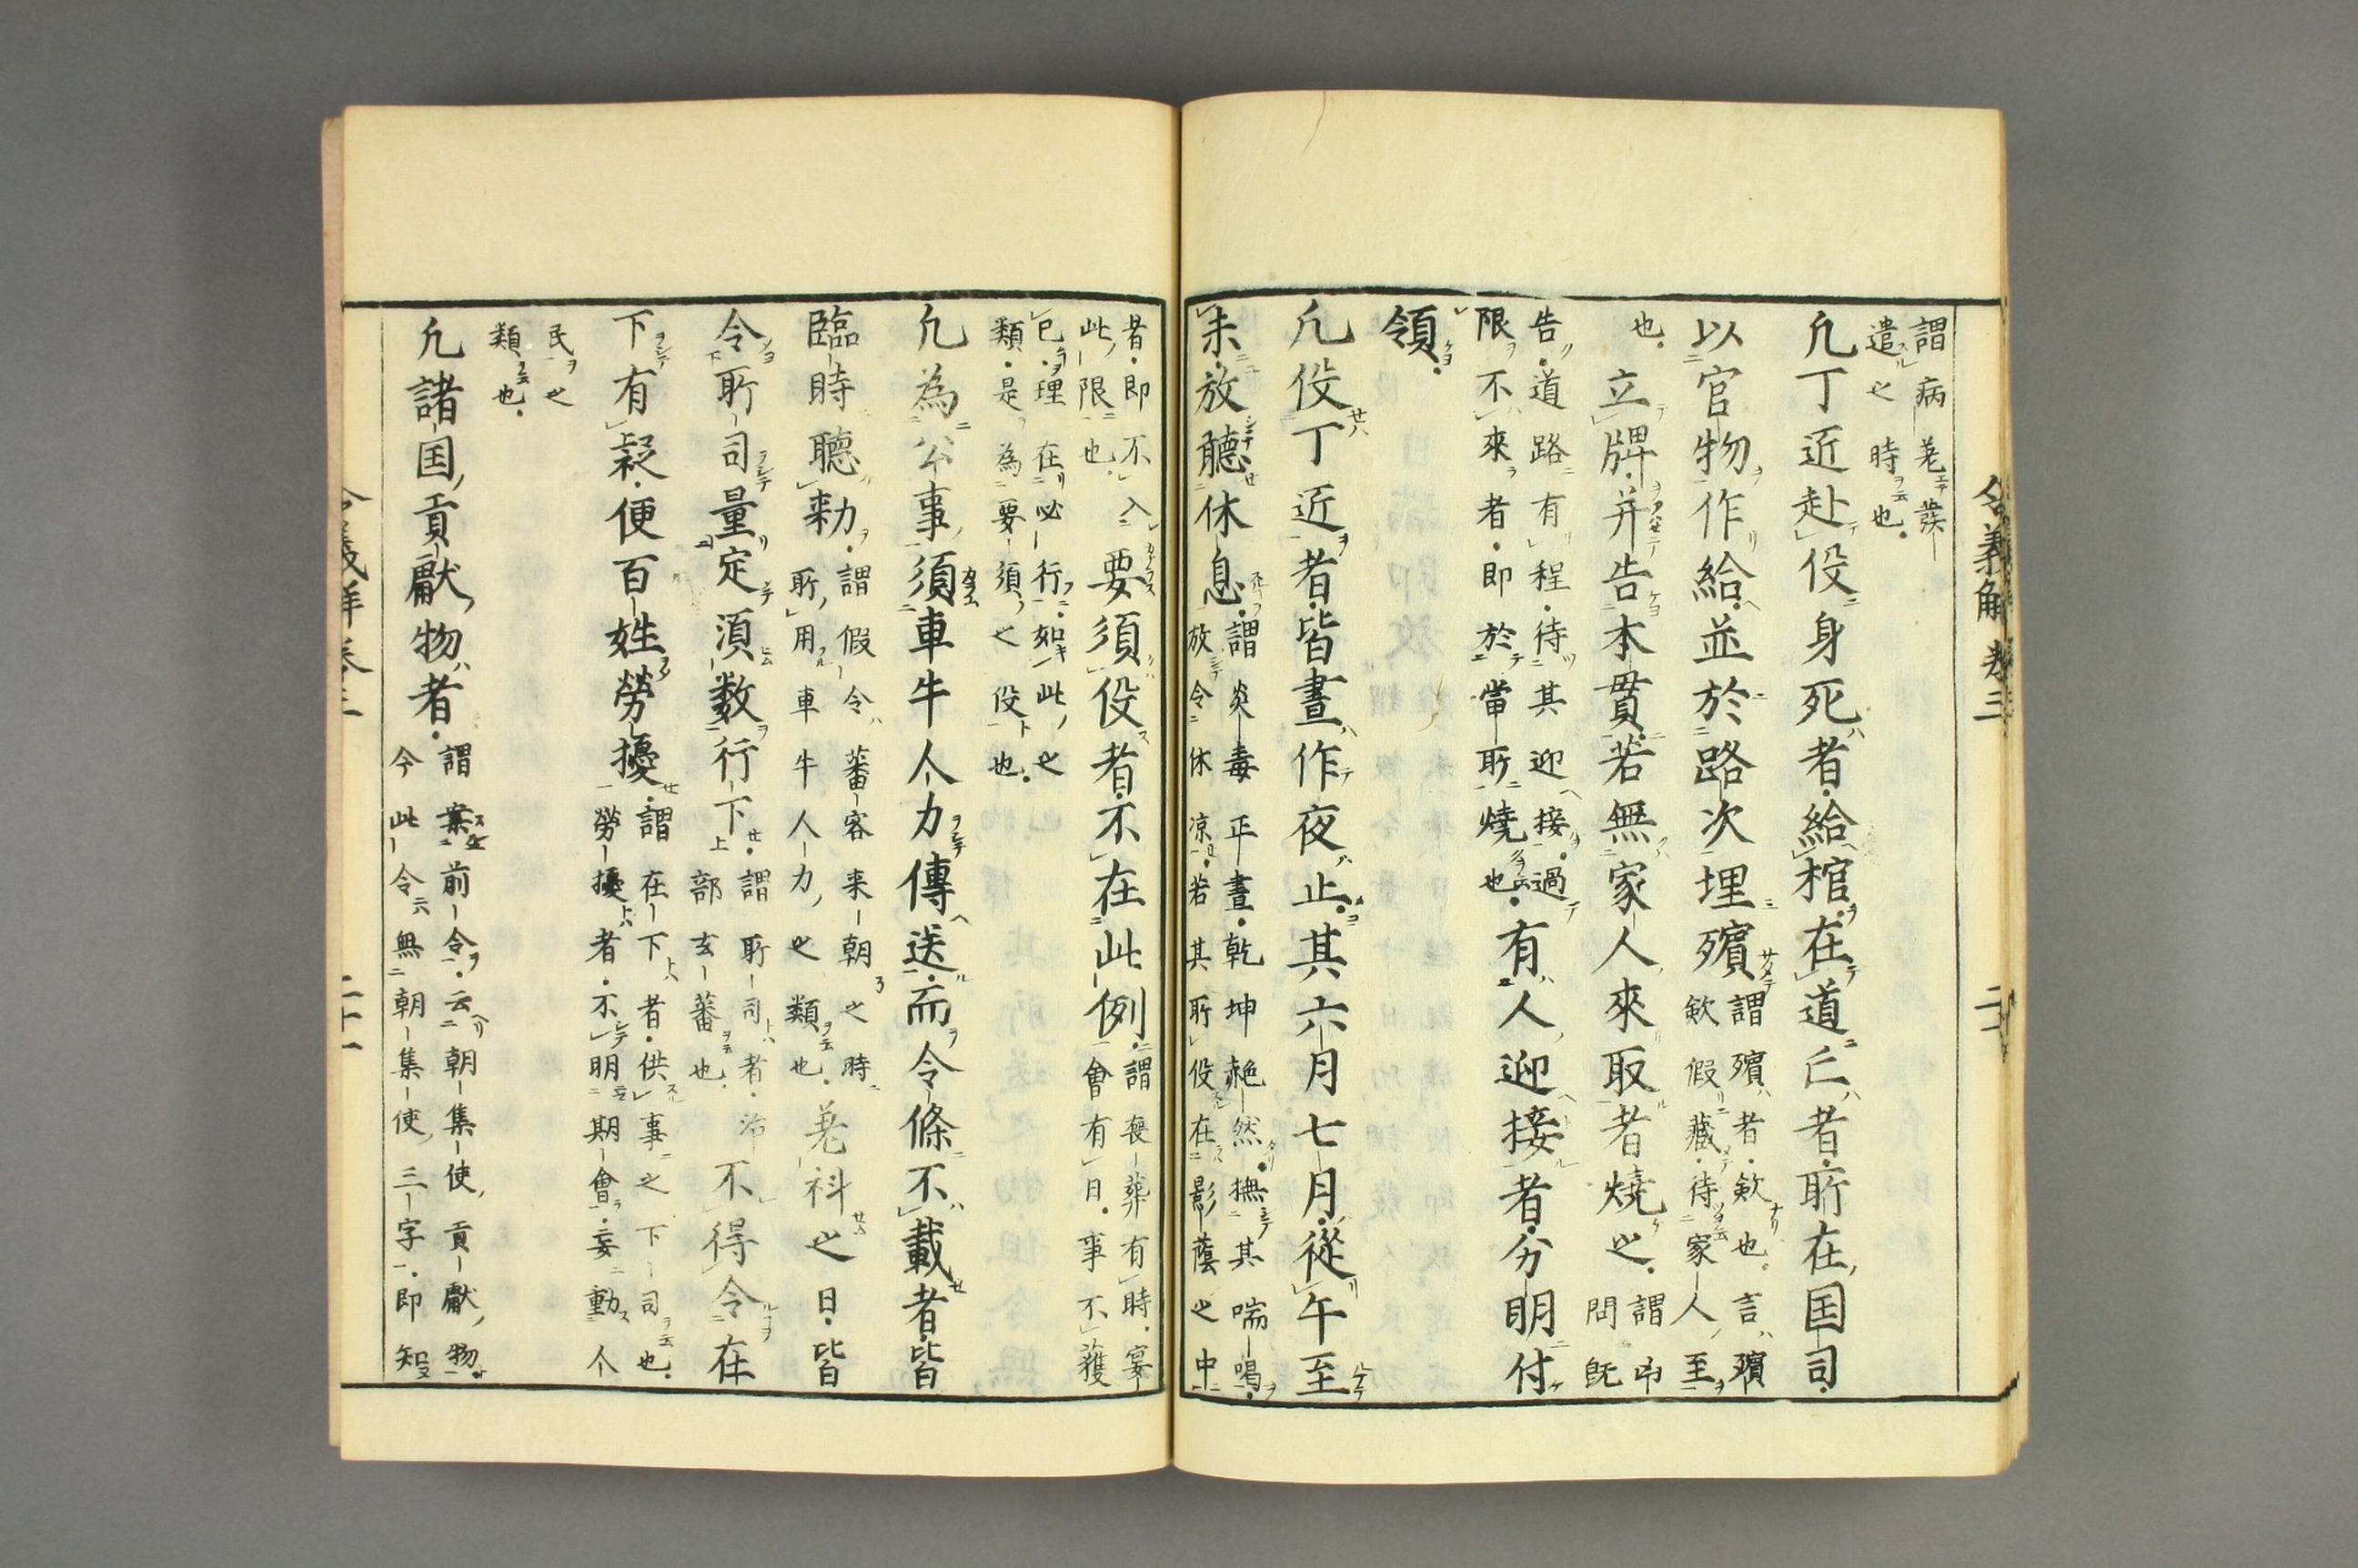 令義解 卷三
謂病差發
遣之時也
凢丁近赴役身死者給棺在道亡者所在国司
以官物作給並於路次埋殯謂殯者歛也言殯
歛假藏待家人至
也立牌并告本貫若無家人來取者燒之謂印
問既
告道路有程待其迎接過
限不來者即於當所燒也有人迎接者分明付
領
凢役丁近者皆晝作夜止其六月七月從午至
未放聽休息謂炎毒正晝乾坤赩然撫其喘喝
放令休凉若其所役在影蔭之中
者即不入要須役者不在此例謂喪葬有時宴
此限也會有日事不獲
已理在必行如此之
類是為要須之役也
凢為公事須車牛人力傳送而令條不載者皆
臨時聽勑謂假令蕃客来朝之時
所用車牛人力之類也差科之日皆
令所司量定湏数行下謂所司者治
部玄蕃也不得令在
下有疑便百姓勞擾謂在下者供事之下司也
勞擾者不明期會妄動人
民之
類也
凢諸国貢獻物者謂案前令云朝集使貢獻物
今此令無朝集使三字即知